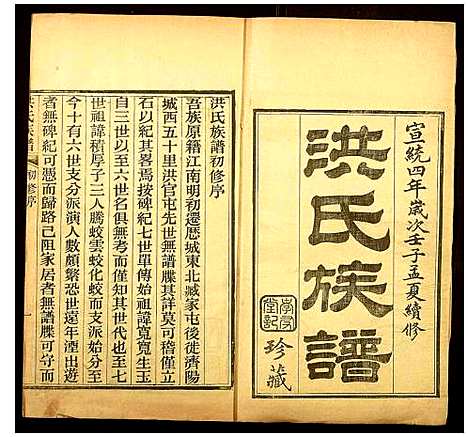 宣統四年歲次壬子孟夏續修
洪氏族譜
珍藏
洪氏族譜初修序
吾族原籍江南明初遷歷城東北臧家屯後徙濟陽
城西五十里洪官屯先世無譜牒其詳莫可稽僅立
石以紀其畧焉按碑紀七世單傳始祖諱寬寬生玉
自三世以至六世名俱無考而僅知其一也至七
世祖諱積厚子三人騰蛟雲蛟化蛟而支派始分至
今十有六世支分派演人數頗繁恐世遠年湮出遊
者無碑紀可憑而歸路已阻家居者無譜牒可守而
洪氏族譜
初修序